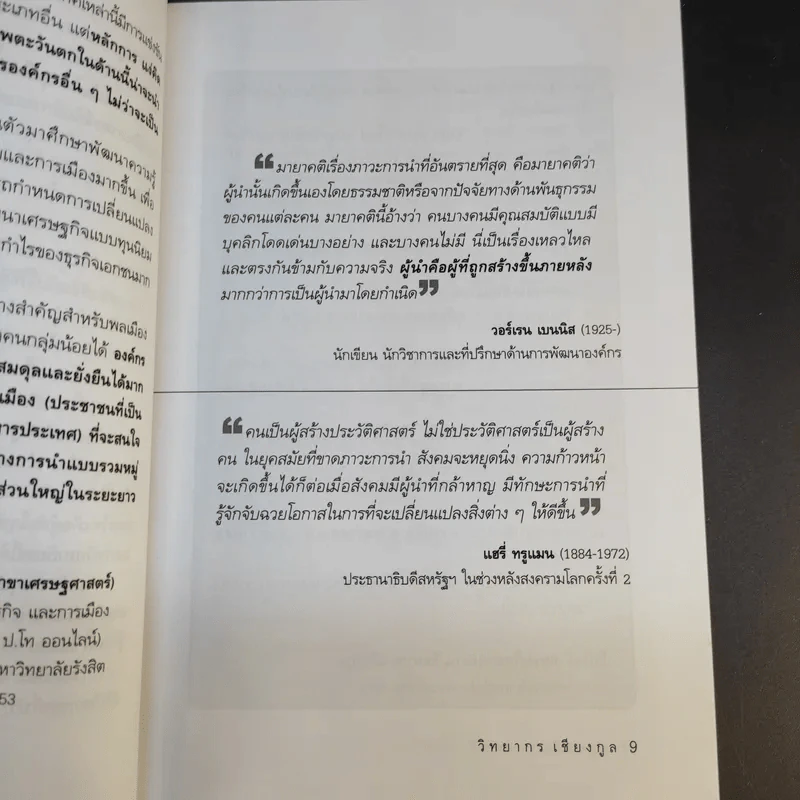 เภทอื่น แต่หลักการ
พตะวันตกในด้านนี้น่าจะนำ
องค์กรอื่น ๆ ไม่ว่าจะเป็น
ตัวมาศึกษาพัฒนาความรู้
และการเมืองมากขึ้น เพื่อ
กำหนดการเปลี่ยนแปลง
นาเศรษฐกิจแบบทุนนิยม
กำไรของธุรกิจเอกชนมาก
างสำคัญสำหรับพลเมือง
คนกลุ่มน้อยได้ องค์กร
สมดุลและยั่งยืนได้มาก
เมือง (ประชาชนที่เป็น
ารประเทศ) ที่จะสนใจ
างการนำแบบรวมหมู่
ส่วนใหญ่ในระยะยาว
าขาเศรษฐศาสตร์)
กิจ และการเมือง
ป.โท ออนไลน์)
หาวิทยาลัยรังสิต
53
“มายาคติเรื่องภาวะการนำที่อันตรายที่สุด คือมายาคติว่า
ผู้นำนั้นเกิดขึ้นเองโดยธรรมชาติหรือจากปัจจัยทางด้านพันธุกรรม
ของคนแต่ละคน มายาคตินี้อ้างว่า คนบางคนมีคุณสมบัติแบบมี
บุคลิกโดดเด่นบางอย่าง และบางคนไม่มี นี่เป็นเรื่องเหลวไหล
และตรงกันข้ามกับความจริง ผู้นำคือผู้ที่ถูกสร้างขึ้นภายหลัง
มากกว่าการเป็นผู้นำมาโดยกำเนิด”
วอร์เรน เบนนิส (1925-)
นักเขียน นักวิชาการและที่ปรึกษาด้านการพัฒนาองค์กร
“คนเป็นผู้สร้างประวัติศาสตร์ ไม่ใช่ประวัติศาสตร์เป็นผู้สร้าง
คน ในยุคสมัยที่ขาดภาวะการนำ สังคมจะหยุดนิ่ง ความก้าวหน้า
จะเกิดขึ้นได้ก็ต่อเมื่อสังคมมีผู้นำที่กล้าหาญ มีทักษะการนำที่
รู้จักจับฉวยโอกาสในการที่จะเปลี่ยนแปลงสิ่งต่าง ๆ ให้ดีขึ้น”
แฮรี่ ทรูแมน (1884-1972)
ประธานาธิบดีสหรัฐฯ ในช่วงหลังสงครามโลกครั้งที่ 2
วิทยากร เชียงกูล 9